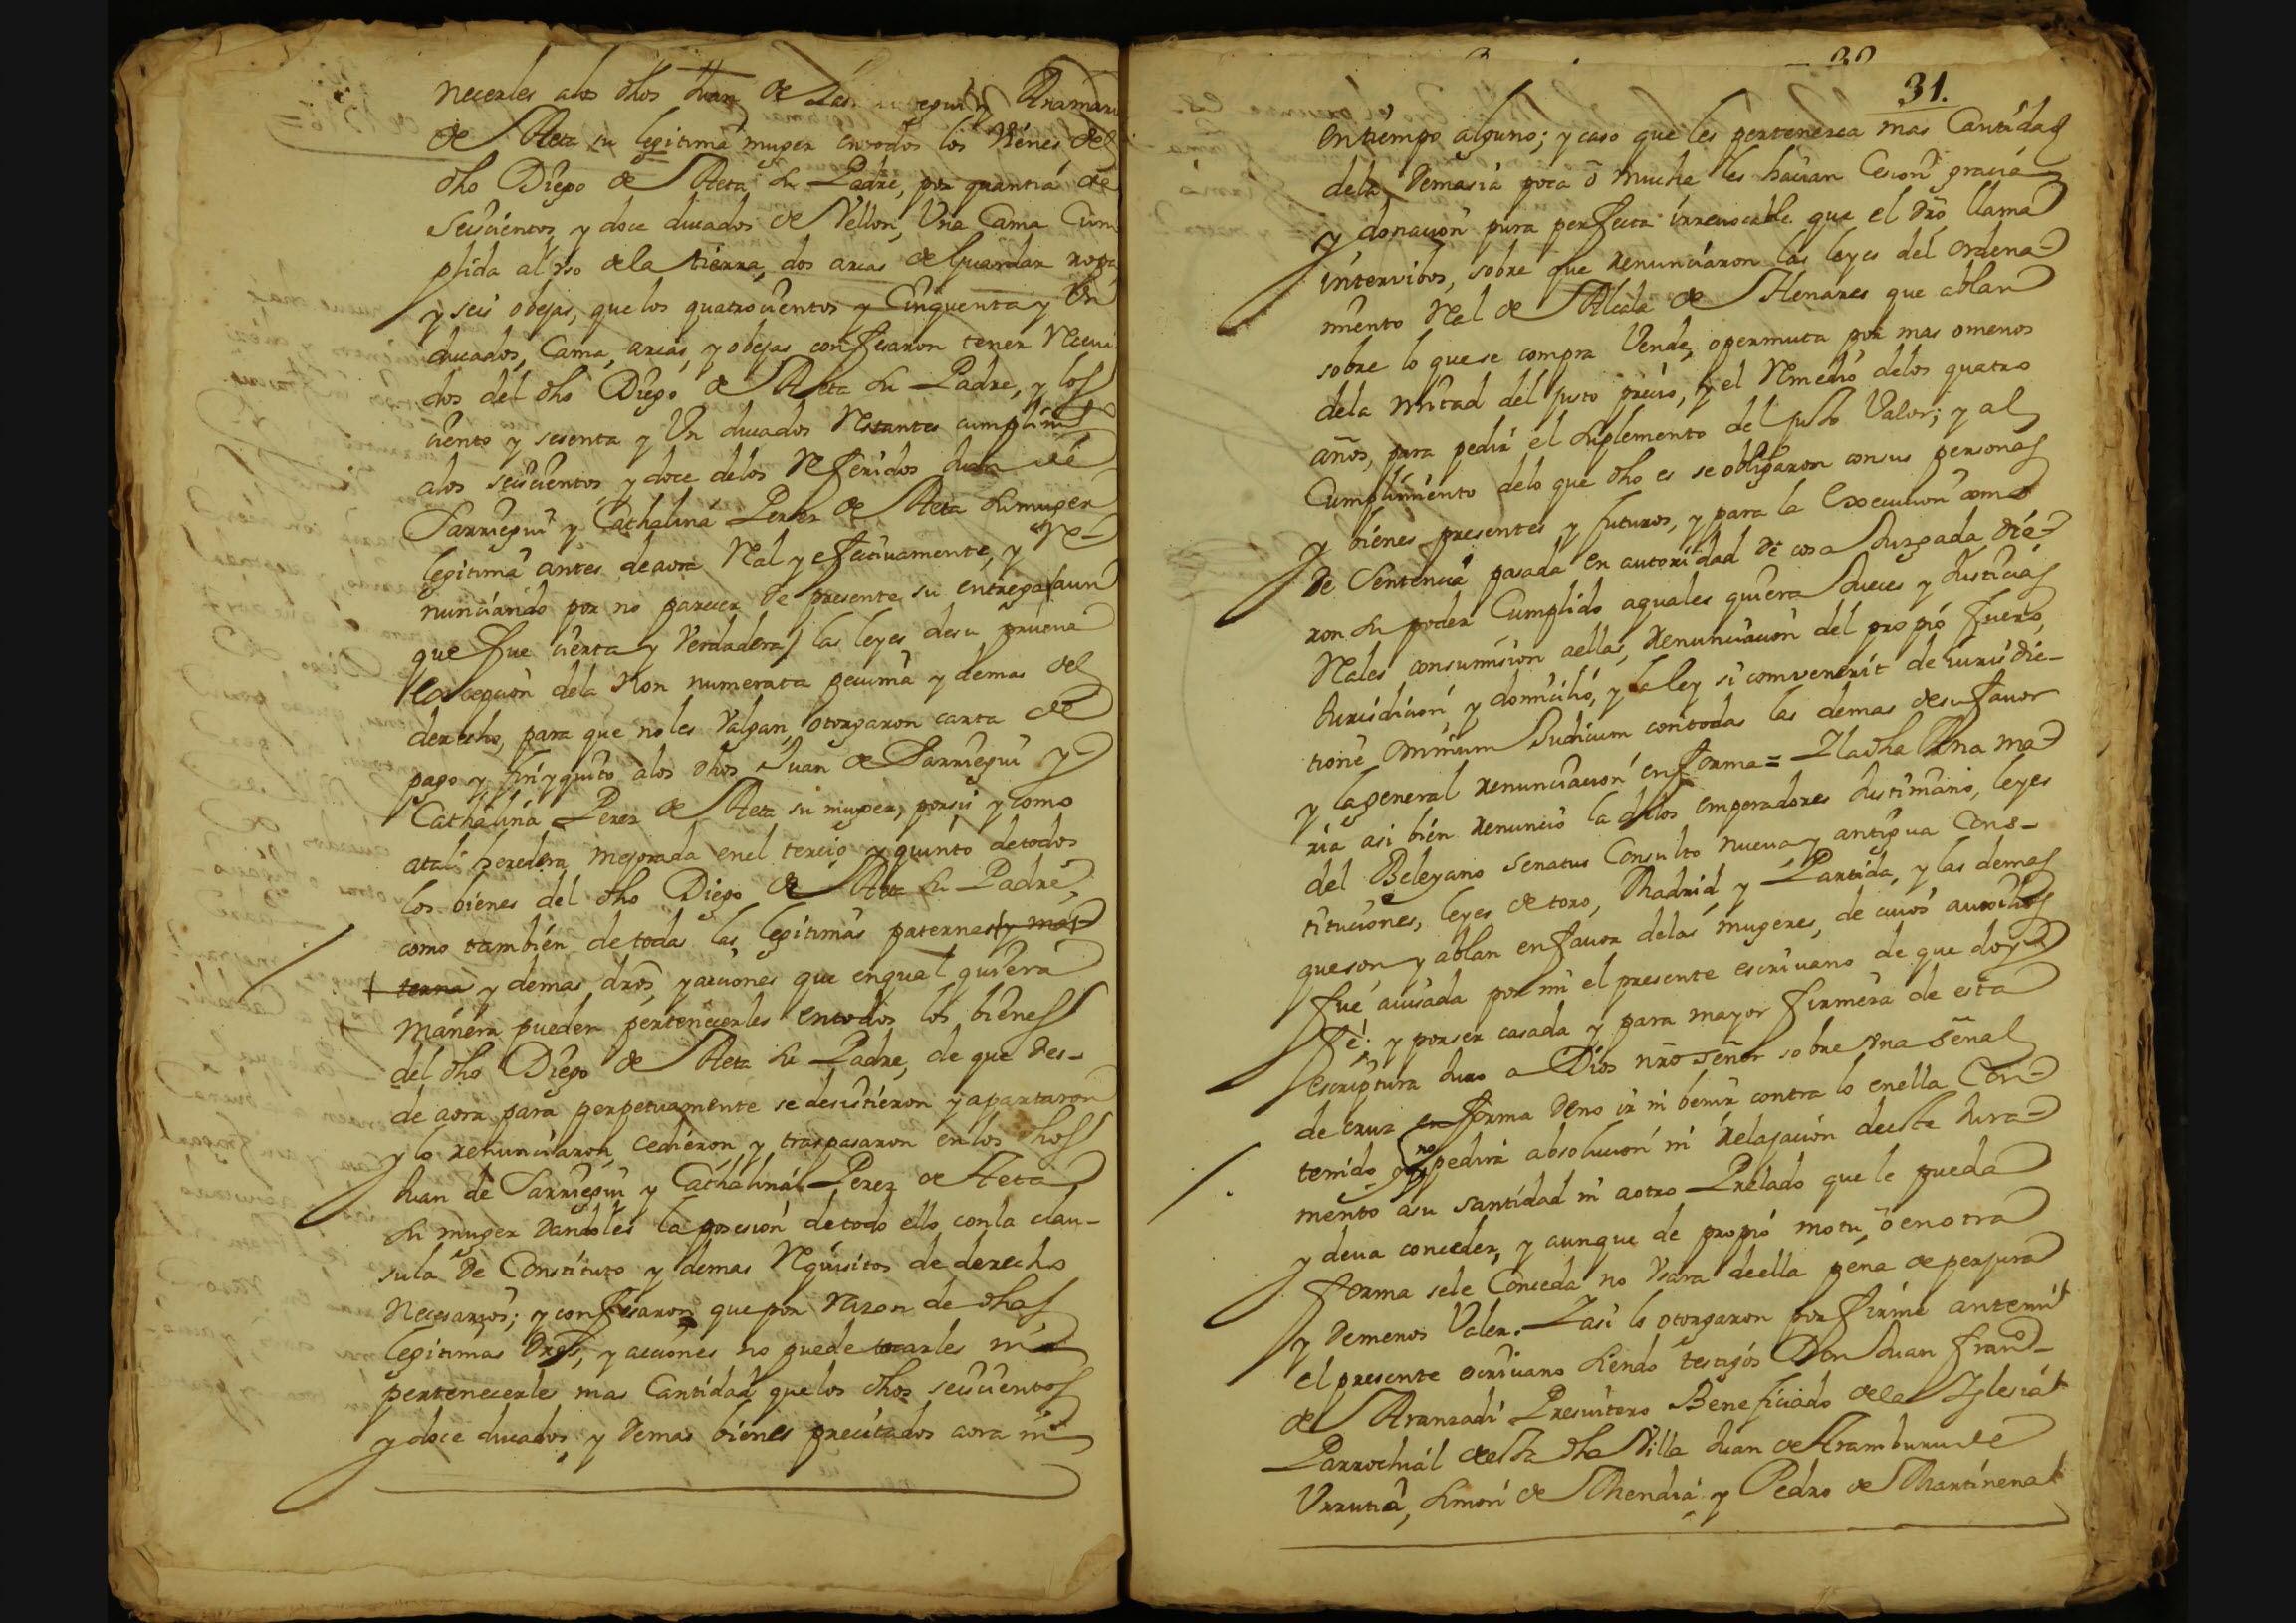 necerles alos dhos Juan de Anamaria
de Aeta su legitima muger entodos los vienes del
dho Diego de Aeta su Padre, por quantia de
Seiscientos y doce ducados de Vellon, Una Cama Cum
plida al vso dela tierra, dos arcas de Guardar ropa
y seis obejas, que los quatrocientos y Cinquenta y Un
ducados, Cama, arcas, y obejas confesaron tener Recivi
dos del dho Diego de Aeta su Padre, y los
ciento y sesenta y Un ducados Restantes cumplim
alos seiscientos y doce delos Referidos Juan de
Sarriegui y Cathalina Perez de Aeta su muger
legitima antes de aora Real y efectivamente, y Re-
nunciando por no parecer de presente su entrega (aun
que fue cierta y Verdadera) las leyes desu prueva
excepcion dela Non numerata pecunia y demas del
derecho, para que noles Valgan, otorgaron carta de
pago y finyquito alos dhos Juan de Sarriegui y
Cathalina Perez de Aeta su muger, porsi y como
atal heredera mejorada enel tercio y quinto detodos
los bienes del dho Diego de Aeta su Padre,
como tambien detodas las legitimas paternas y ma
terna y demas dros, yacciones que enqual quiera
manera pueden pertenecerles entodos los bienes
del dho Diego de Aeta su Padre, de que des-
de aora para perpetuamente se desistieron yapartaron
y lo renunciaron, cedieron y traspasaron enlos dhos
Juan de Sarriegui y Cathalina Perez de Aeta
su muger dandoles la posesion detodo ello conla clau-
sula de Constituto y demas Requisitos de derecho
Necesarios; y confesaron que por Razon de dhas
legitimas dros, y acciones no puede tocarles ni
pertenecerle mas Cantidad quelos dhos seiscientos
y doce ducados, y demas bienes precitados aora ni
31.
entiempo alguno; y caso que les pertenezca mas Cantidad
dela demasia poca o mucha les hacian Cesion gracia
y donacion pura perfecta irrevocable que el dro llama
intervibos, sobre que renunciaron las leyes del ordena
miento Real de Alcala de Henares que ablan
sobre lo que se compra Vende, opermuta por mas omenos
dela mitad del justo precio, y el Remedio delos quatro
años, para pedir el suplemento del justo Valor; y al
Cumplimiento delo que dho es se obligaron consus personas
y bienes presentes y futuros, y para la Execucion como
de Sentencia pasada en autoridad de cosa Juzgada die
ron su poder Cumplido aquales quiera Jueces y Justicias
Reales consumision aellas, renunciacion del propio fuero,
Jurisdicion, y domicilio, y la ley si combenerit de Iurisdic-
tione Omnium Judicum contodas las demas desu favor
y lageneral renunciacion enforma = Yladha Ana ma
ria asi bien renuncio la delos emperadores Justiniano, leyes
del Beleyano Senatus Consulto nueva y antigua Cons-
tituciones, leyes de toro, Madrid, y Partida, y las demas
queson y ablan enfavor delas mugeres, de cuios auxilios
fue avisada por mi el presente escrivano de que doy
fe: y porser casada y para mayor firmeza de esta
escriptura Juro a Dios nro señor sobre vna señal
de cruz en forma deno ir ni benir contra lo enella Con
tenido, no pedira absolucion ni relajacion deeste Jura
mento asu santidad ni aotro Prelado que le pueda
y deva conceder, y aunque de propio motu, o enotra
forma sele Conceda no Vsara deella pena de perjura
y demenos Valer. Yasi lo otorgaron por firme antemi
el presente escrivano siendo testigos Don Juan Franco
de Aranzadi Presvitero Beneficiado dela Yglesia
Parrochial desta dha Villa Juan de Aramburu de
Urrutia, Simon de Mendia y Pedro de Martinena